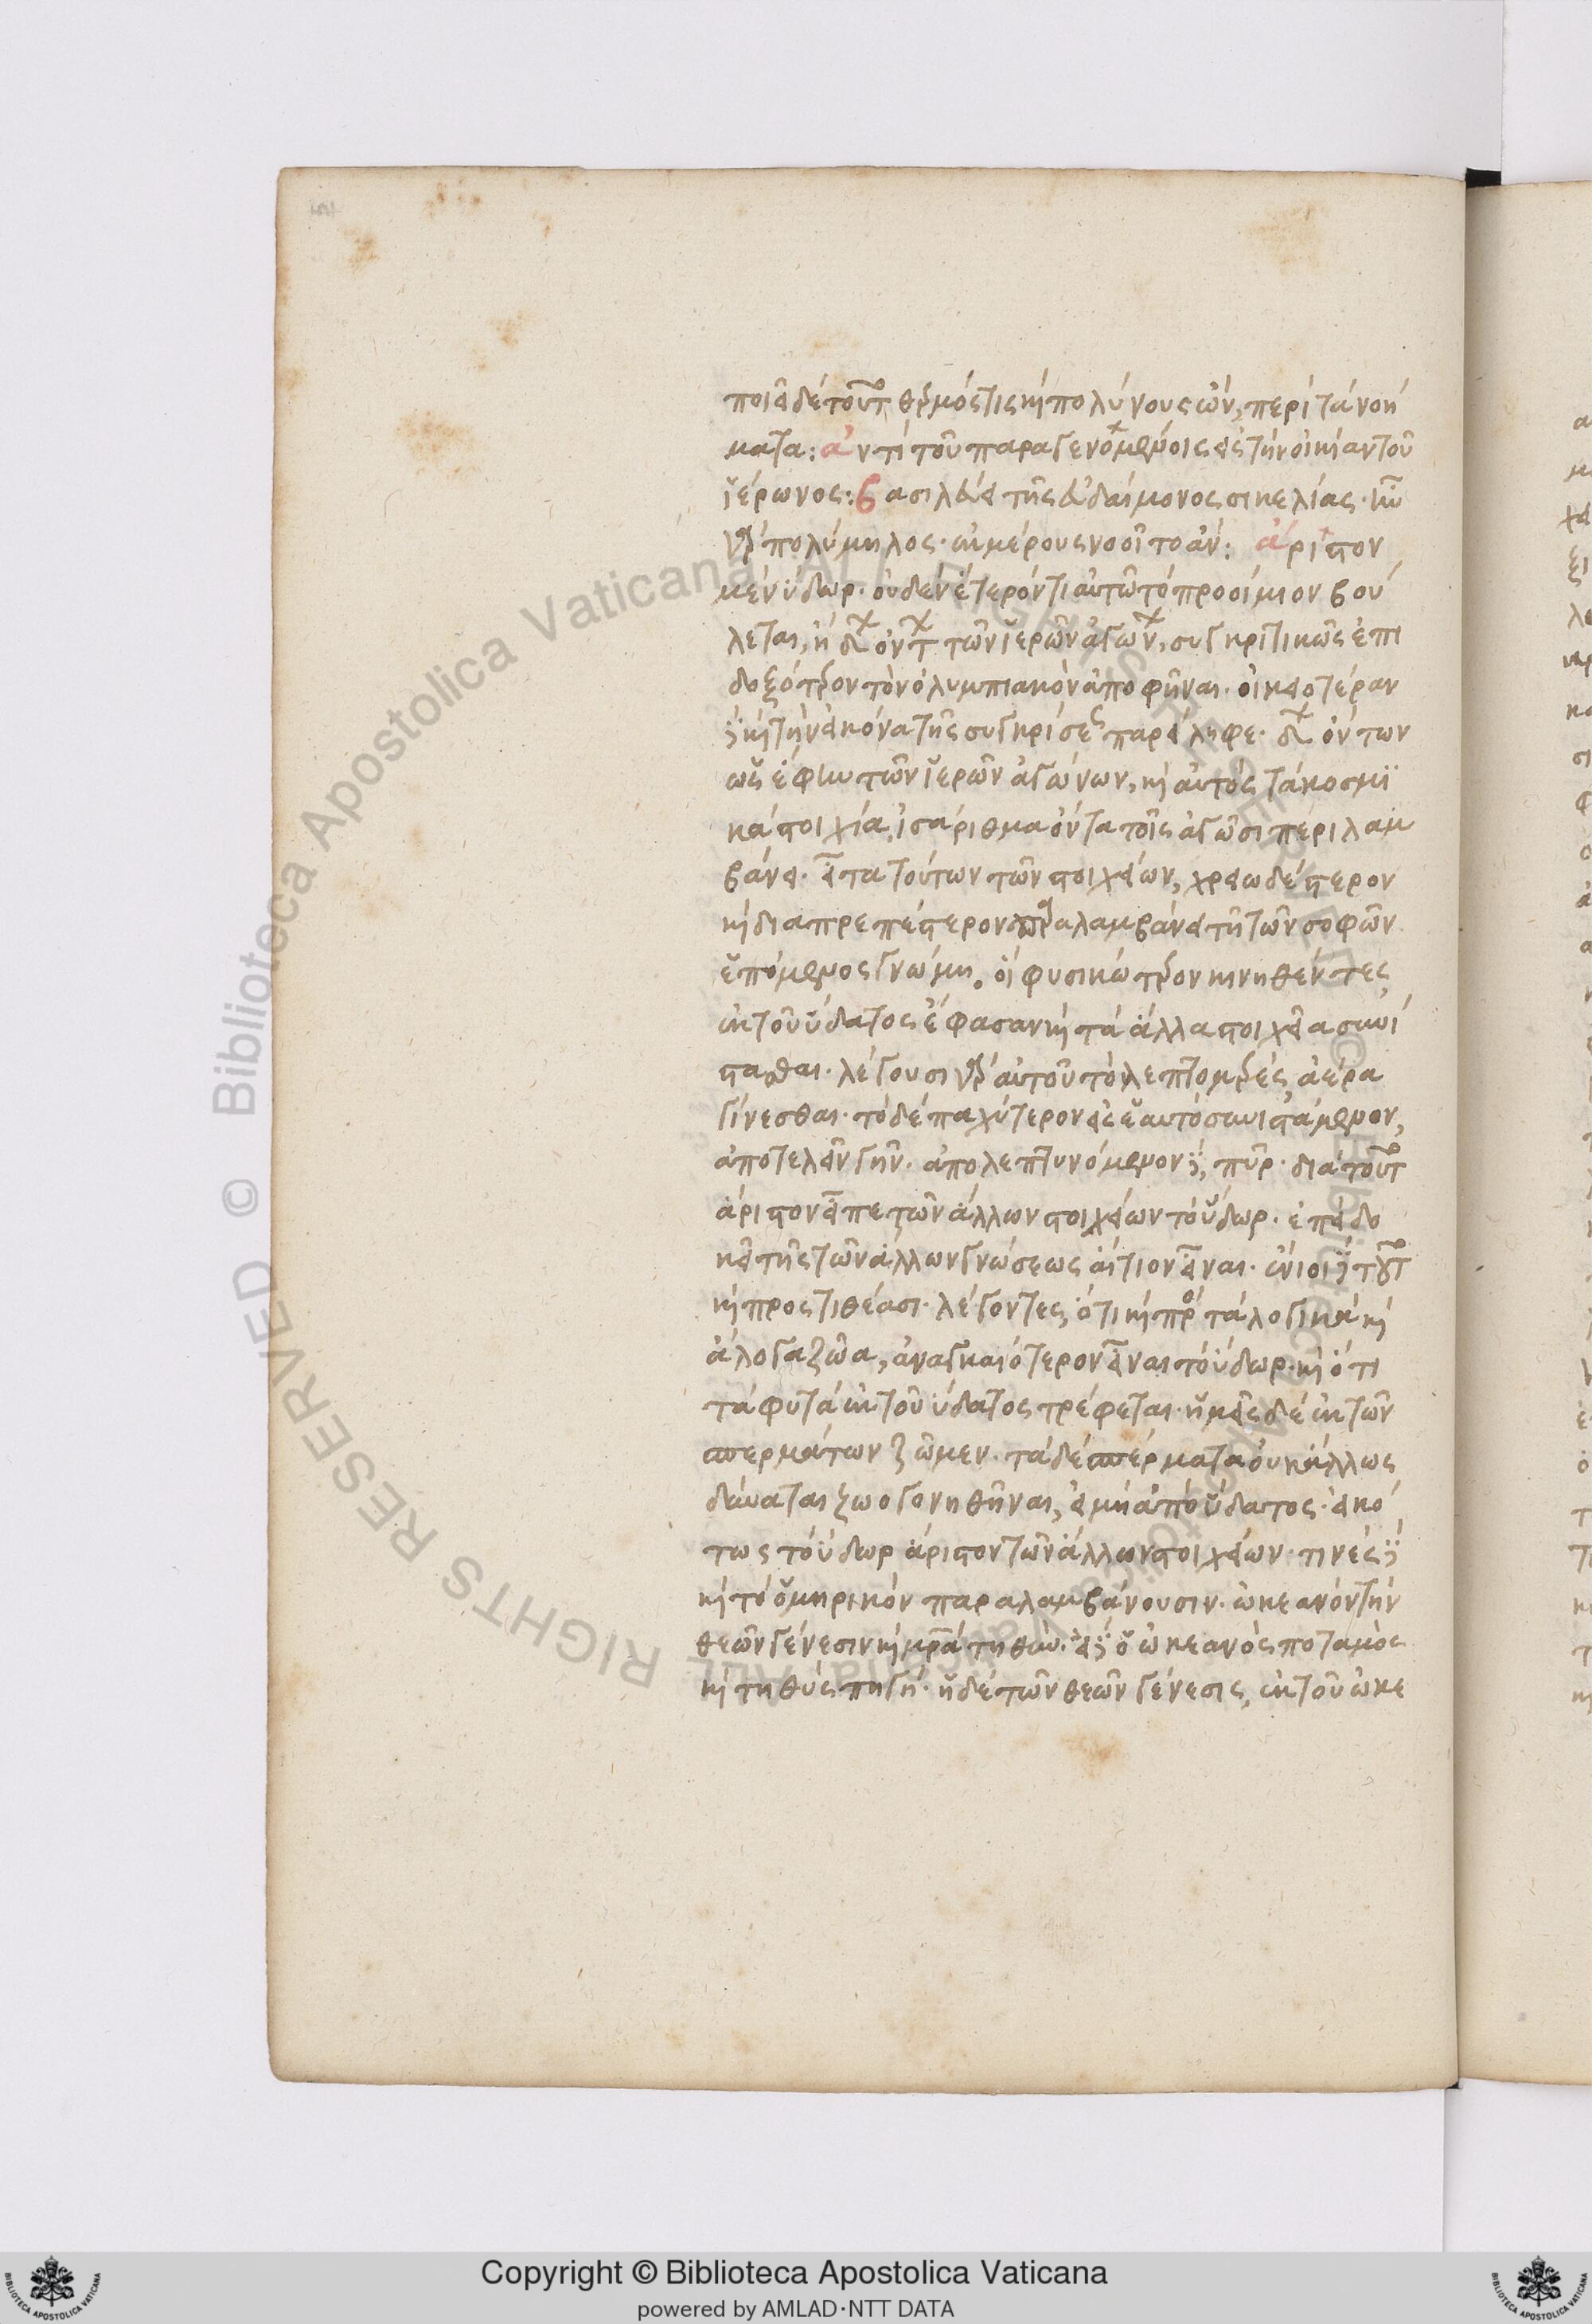 ποιεῖ δὲ τοῦτο θερμός τις καὶ πολύνους ὢν, περὶ τὰ νοή
ματα: ἀντὶ τοῦ παραγενομένοις εἰς τὴν οἰκίαν τοῦ
ἱέρωνος: βασιλεύει τῆς εὐδαίμονος σικελίας.
γὰρ πολύμηλος. ἐκ μέρους νοοῖτο ἄν: ἄριστον
μὲν ὕδωρ. οὐδὲν ἕτερόν τι αὐτῶ τὸ προοίμιον βού
λεται, ἢ δ ὄντ τῶν ἱερῶν ἀγών, συγκριτικῶς ἐπι
δοξότερον τὸν ὀλυμπιακὸν ἀποφῆναι. οἰκειοτέραν
δὲ καὶ τὴν εἰκόνα τῆς συγκρίσεως παρείληφε. δ ὄντων
ὡς ἔφην τῶν ἱερῶν ἀγώνων, καὶ αὐτὸς τὰ κοσμι
κὰ στοιχεῖα, ἰσάριθμα ὄντα τοῖς ἀγῶσι περιλαμ
βάνει. εἶτα τούτων τῶν στοιχείων, χρειωδέστερον
καὶ διαπρεπέστερον παραλαμβάνει τῆ τῶν σοφῶν
ἑπόμενος γνώμη. οἱ φυσικώτερον κινηθέντες
ἐκ τοῦ ὕδατος ἔφασαν καὶ τὰ ἄλλα στοιχεῖα συνί
στασθαι. λέγουσι γὰρ αὐτοῦ τὸ λεπτομερὲς, ἀέρα
γίνεσθαι. τὸ δὲ παχύτερον εἰς ἑαυτὸ συνιστάμενον,
ἀποτελεῖν γῆν. ἀπολεπτυνόμενον δὲ, πῦρ. διὰ τοῦτο
ἄριστον εἶπε τῶν ἄλλων στοιχείων τὸ ὕδωρ. ἐπεὶ δο
κεῖ τῆς τῶν ἄλλων γνώσεως αἴτιον εἶναι. ἔνιοι δὲ τοῦτο
καὶ προστιθέασι. λέγοντες, ὅτι καὶ πρὸς τὰ λογικὰ καὶ
ἄλογα ζῶα, ἀναγκαιότερον εἶναι τὸ ὕδωρ. καὶ ὅτι
τὰ φυτὰ ἐκ τοῦ ὕδατος τρέφεται. ἡμεῖς δὲ ἐκ τῶν
σπερμάτων ζῶμεν. τὰ δὲ σπέρματα οὐκ ἄλλως
δύναται ζωογονηθῆναι, εἰ μὴ ἀπὸ ὕδατος. εἰκό
τως τὸ ὕδωρ ἄριστον τῶν ἄλλων στοιχείων. τινὲς δὲ
καὶ τὸ ὁμηρικὸν παραλαμβάνουσιν. ὠκεανόν τὴν
θεῶν γένεσιν καὶ μητέρα τηθύν. εἰ δὲ ὁ ὠκεανὸς ποταμὸς
καὶ τηθὺς πηγή. ἡ δὲ τῶν θεῶν γένεσις, ἐκ τοῦ ὠκε
© Biblioteca Apostolica Vaticana ALL RIGHTS RESERVED
Copyright © Biblioteca Apostolica Vaticana
powered by AMLAD·NTT DATA